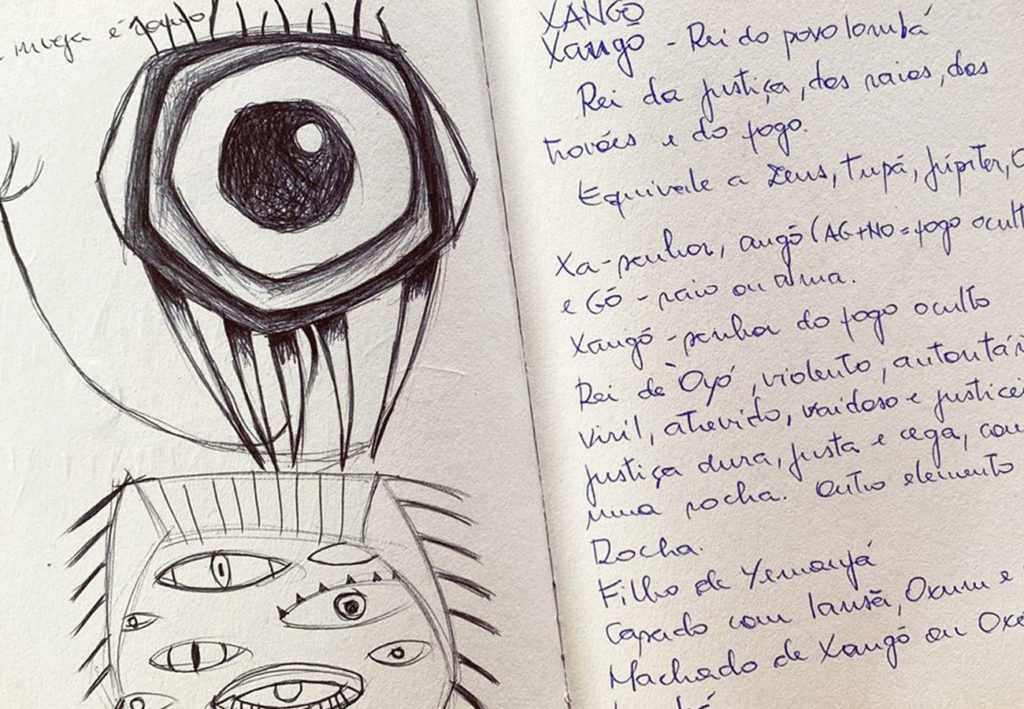 inveja é
XANGÔ
Xangô - Rei do povo Iorubá
Rei da justiça, dos raios, dos
trovões e do fogo.
Equivale a Zeus, Tupã, Júpiter,
Xa-senhor, angô (AG+NO = fogo ocult
e Gô - raio ou alma.
Xangô - senhor do fogo oculto
Rei de Oyó, violento, autoritári
viril, atrevido, vaidoso e justicei
justiça dura, justa e cega, com
uma rocha. Outro elemento
Rocha.
Filho de Yemanyá
Casado com Iansã, Oxum e
Machado de Xangô ou Oxé